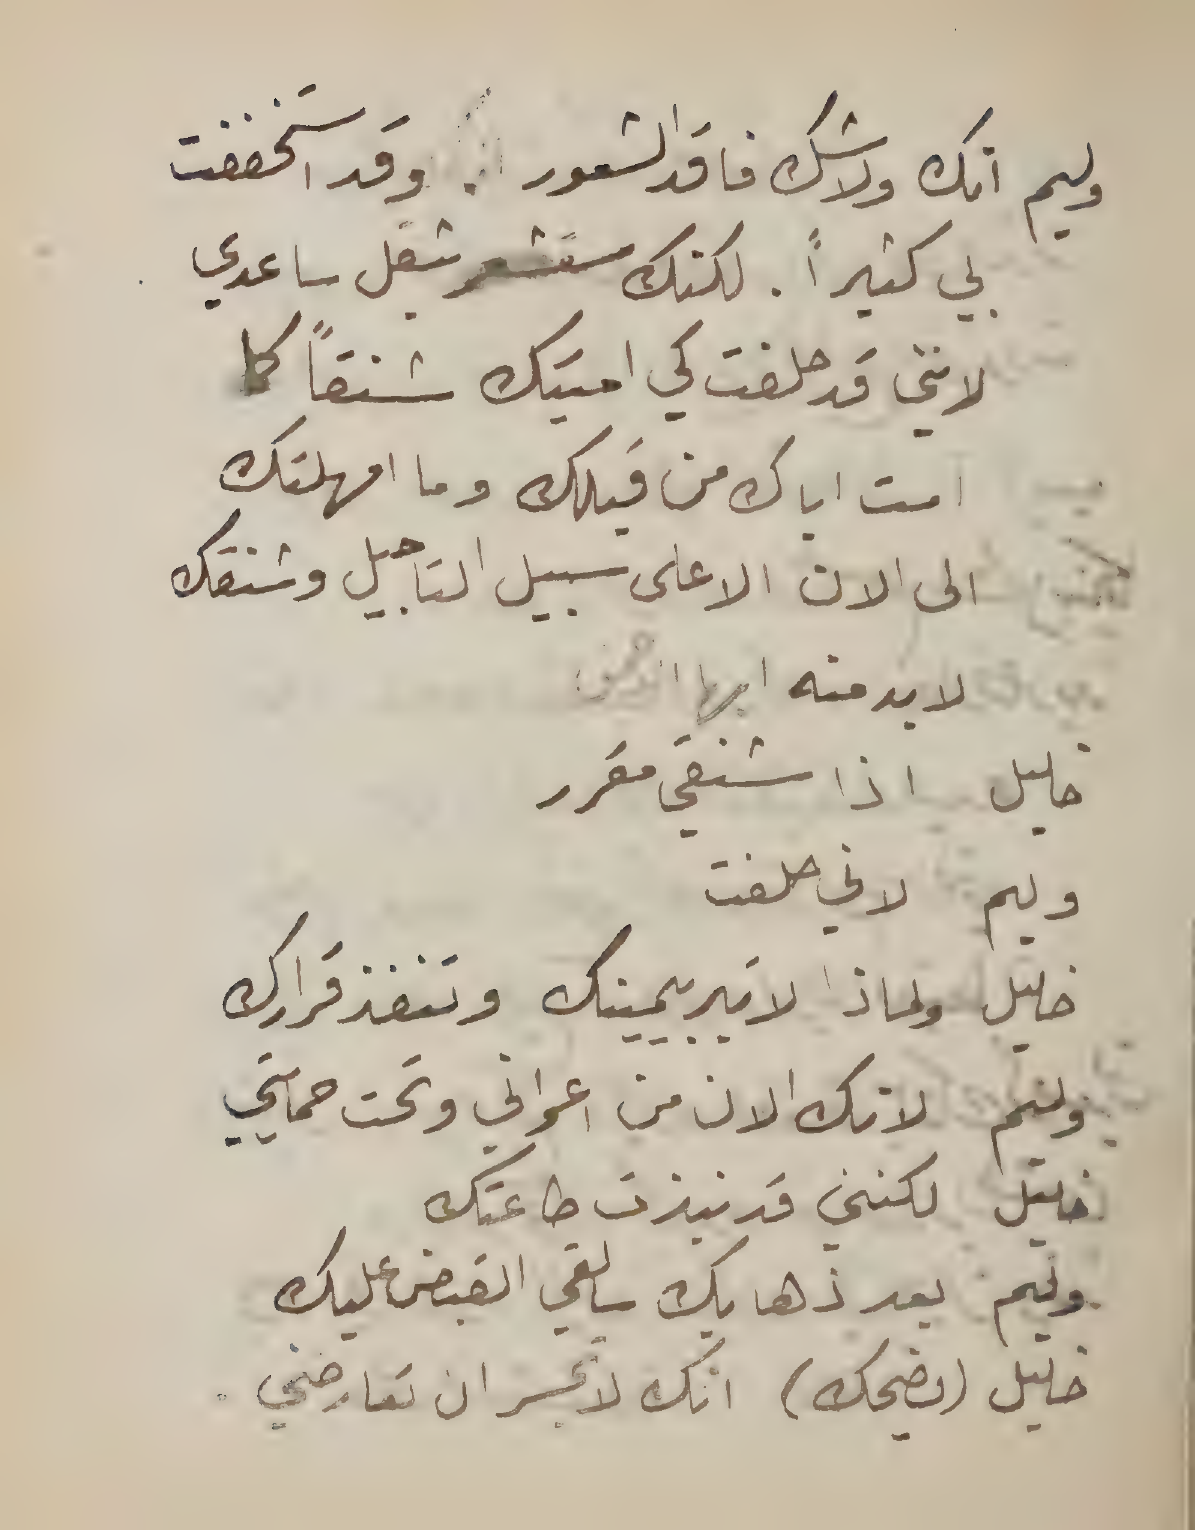 وليم انك ولاشك فاقد الشعور وقد استخففت
بي كثيراً . لكنك ستشعر بثقل ساعدي
لانني قد حلفت كي اميتك شنقاً كما
امت اباك من قبلك وما امهلتك
الى الان الا على سبيل التاجيل وشنقك
لا بد منه ايها
خليل اذا شنقي مقرر
وليم لاني حلفت
خليل ولماذا لا تبر بيمينك وتنفذ قرارك
وليم لانك الان من اعواني وتحت حمايتي
خليل لكنني قد نبذت طاعتك
وليم بعد ذهابك سالقي القبض عليك
خليل (يضحك) انك لا تجسر ان تعارضني .